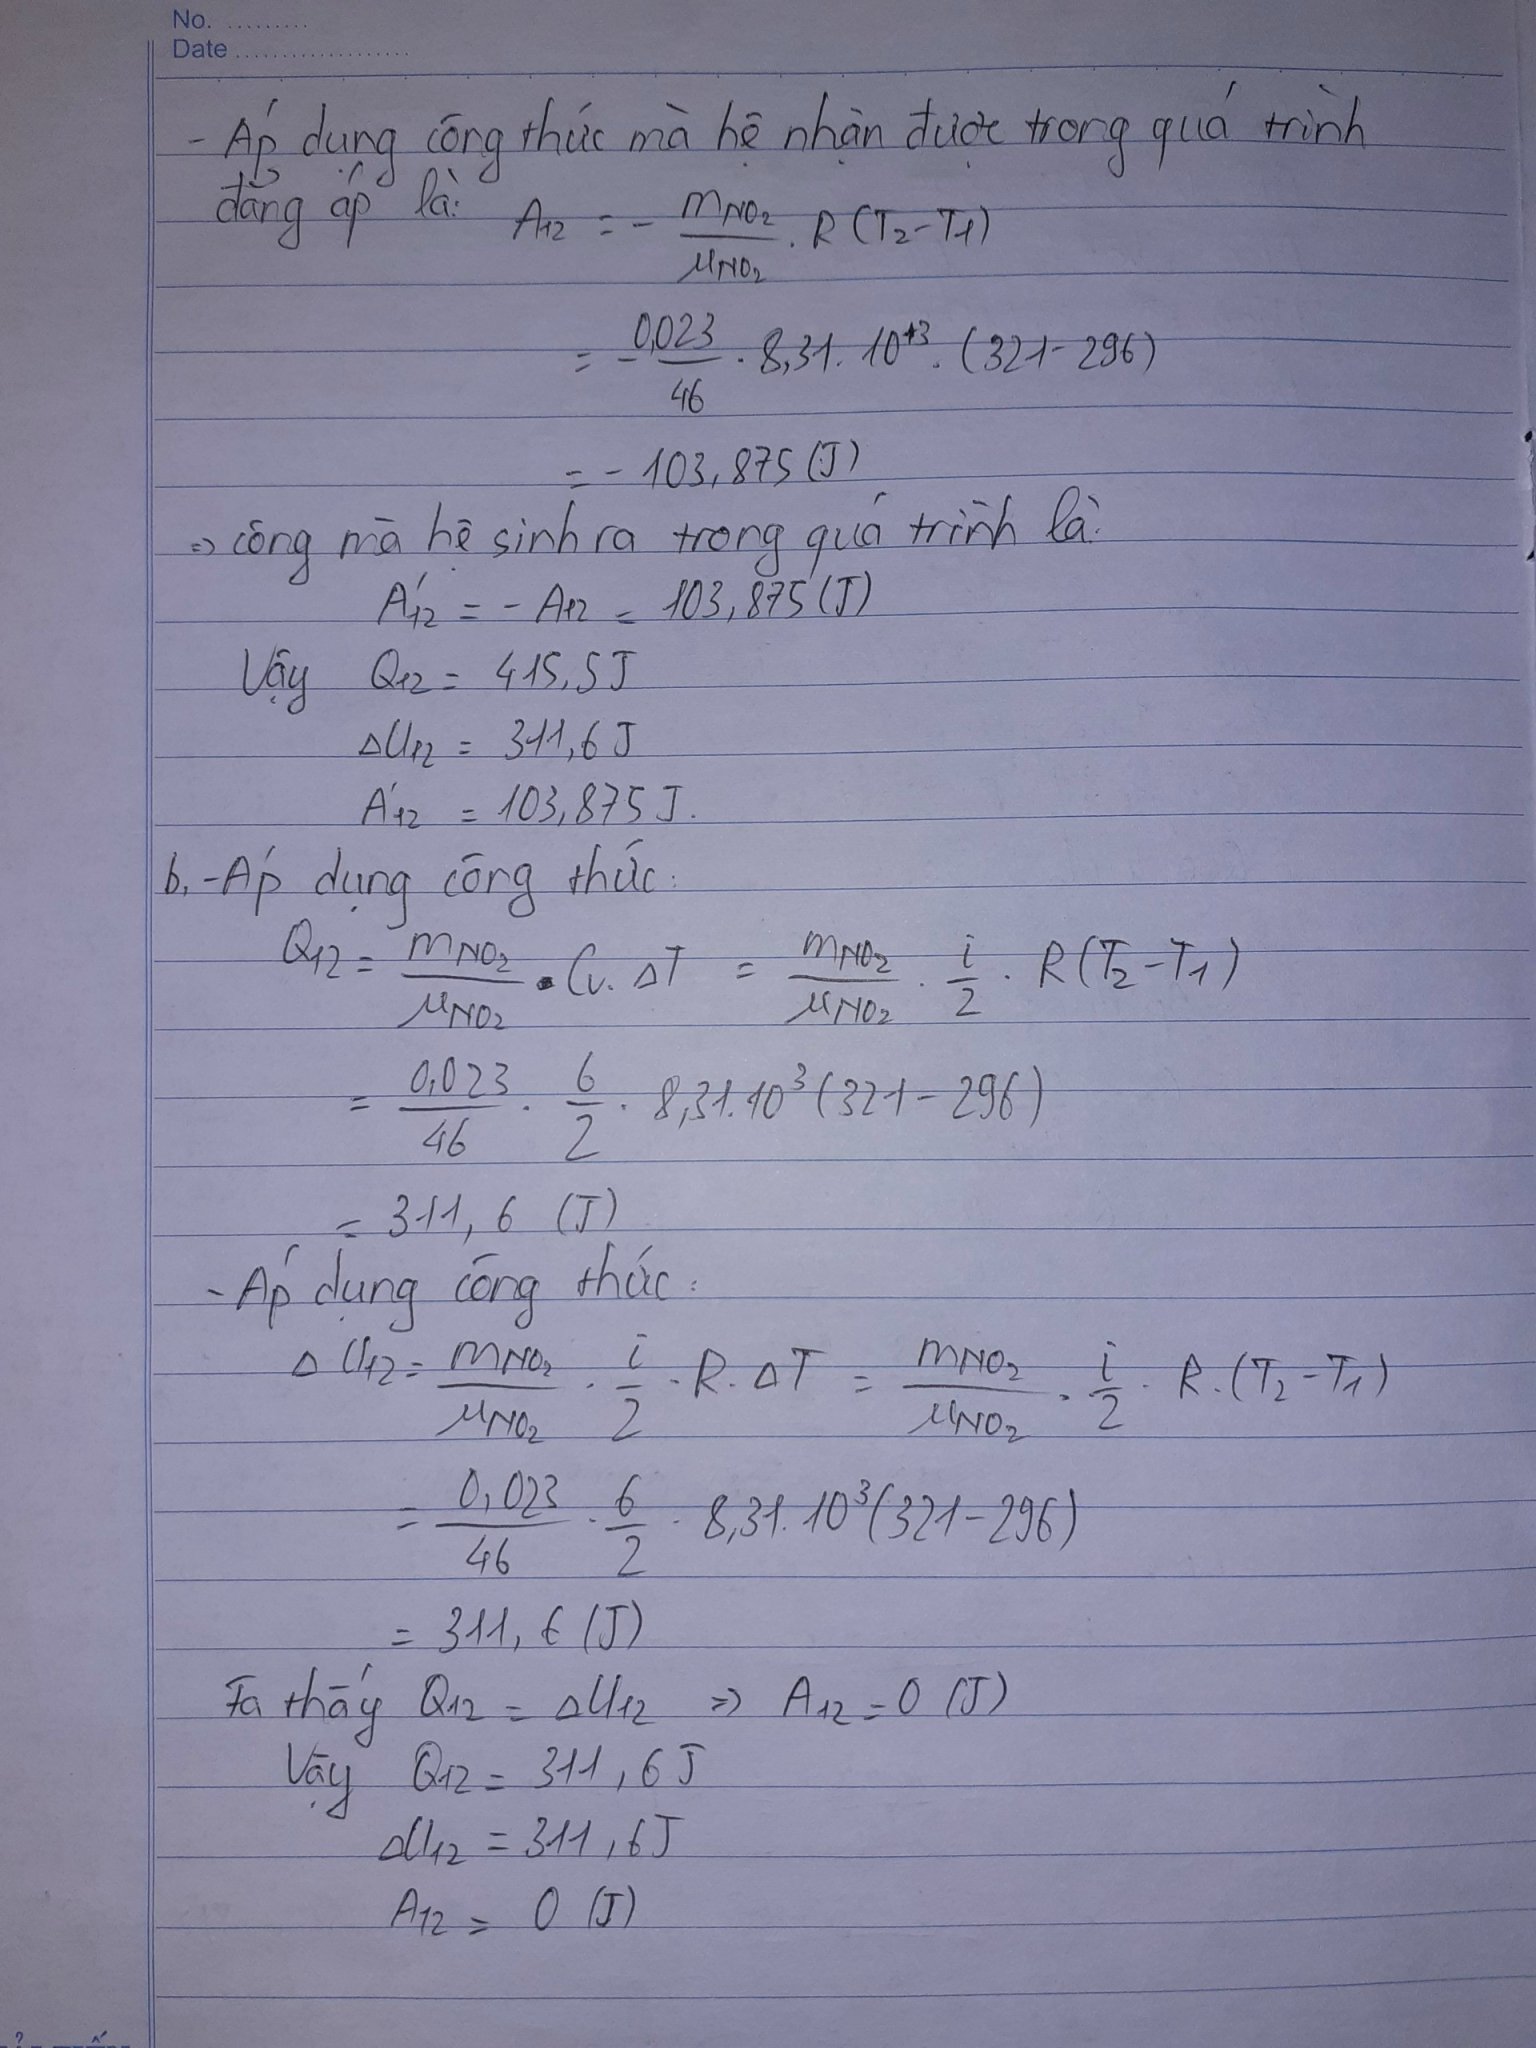 No. .........
Date ...................
- Áp dụng công thức mà hệ nhận được trong quá trình
đẳng áp là: A12 = - mNO2/μNO2 . R (T2-T1)
= - 0,023/46 . 8,31. 10^+3 . (321- 296)
= - 103,875 (J)
=> công mà hệ sinh ra trong quá trình là:
A'12 = - A12 = 103,875 (J)
Vậy Q12 = 415,5 J
ΔU12 = 311,6 J
A'12 = 103,875 J.
b, - Áp dụng công thức:
Q12 = mNO2/μNO2 . Cv. ΔT = mNO2/μNO2 . i/2 . R (T2-T1)
= 0,023/46 . 6/2 . 8,31.10^3 (321- 296)
= 311, 6 (J)
- Áp dụng công thức:
ΔU12 = mNO2/μNO2 . i/2 . R. ΔT = mNO2/μNO2 . i/2 . R. (T2-T1)
= 0,023/46 . 6/2 . 8,31. 10^3 (321- 296)
= 311, 6 (J)
Ta thấy Q12 = ΔU12 => A12 = 0 (J)
Vậy Q12 = 311,6 J
ΔU12 = 311,6 J
A12 = 0 (J)